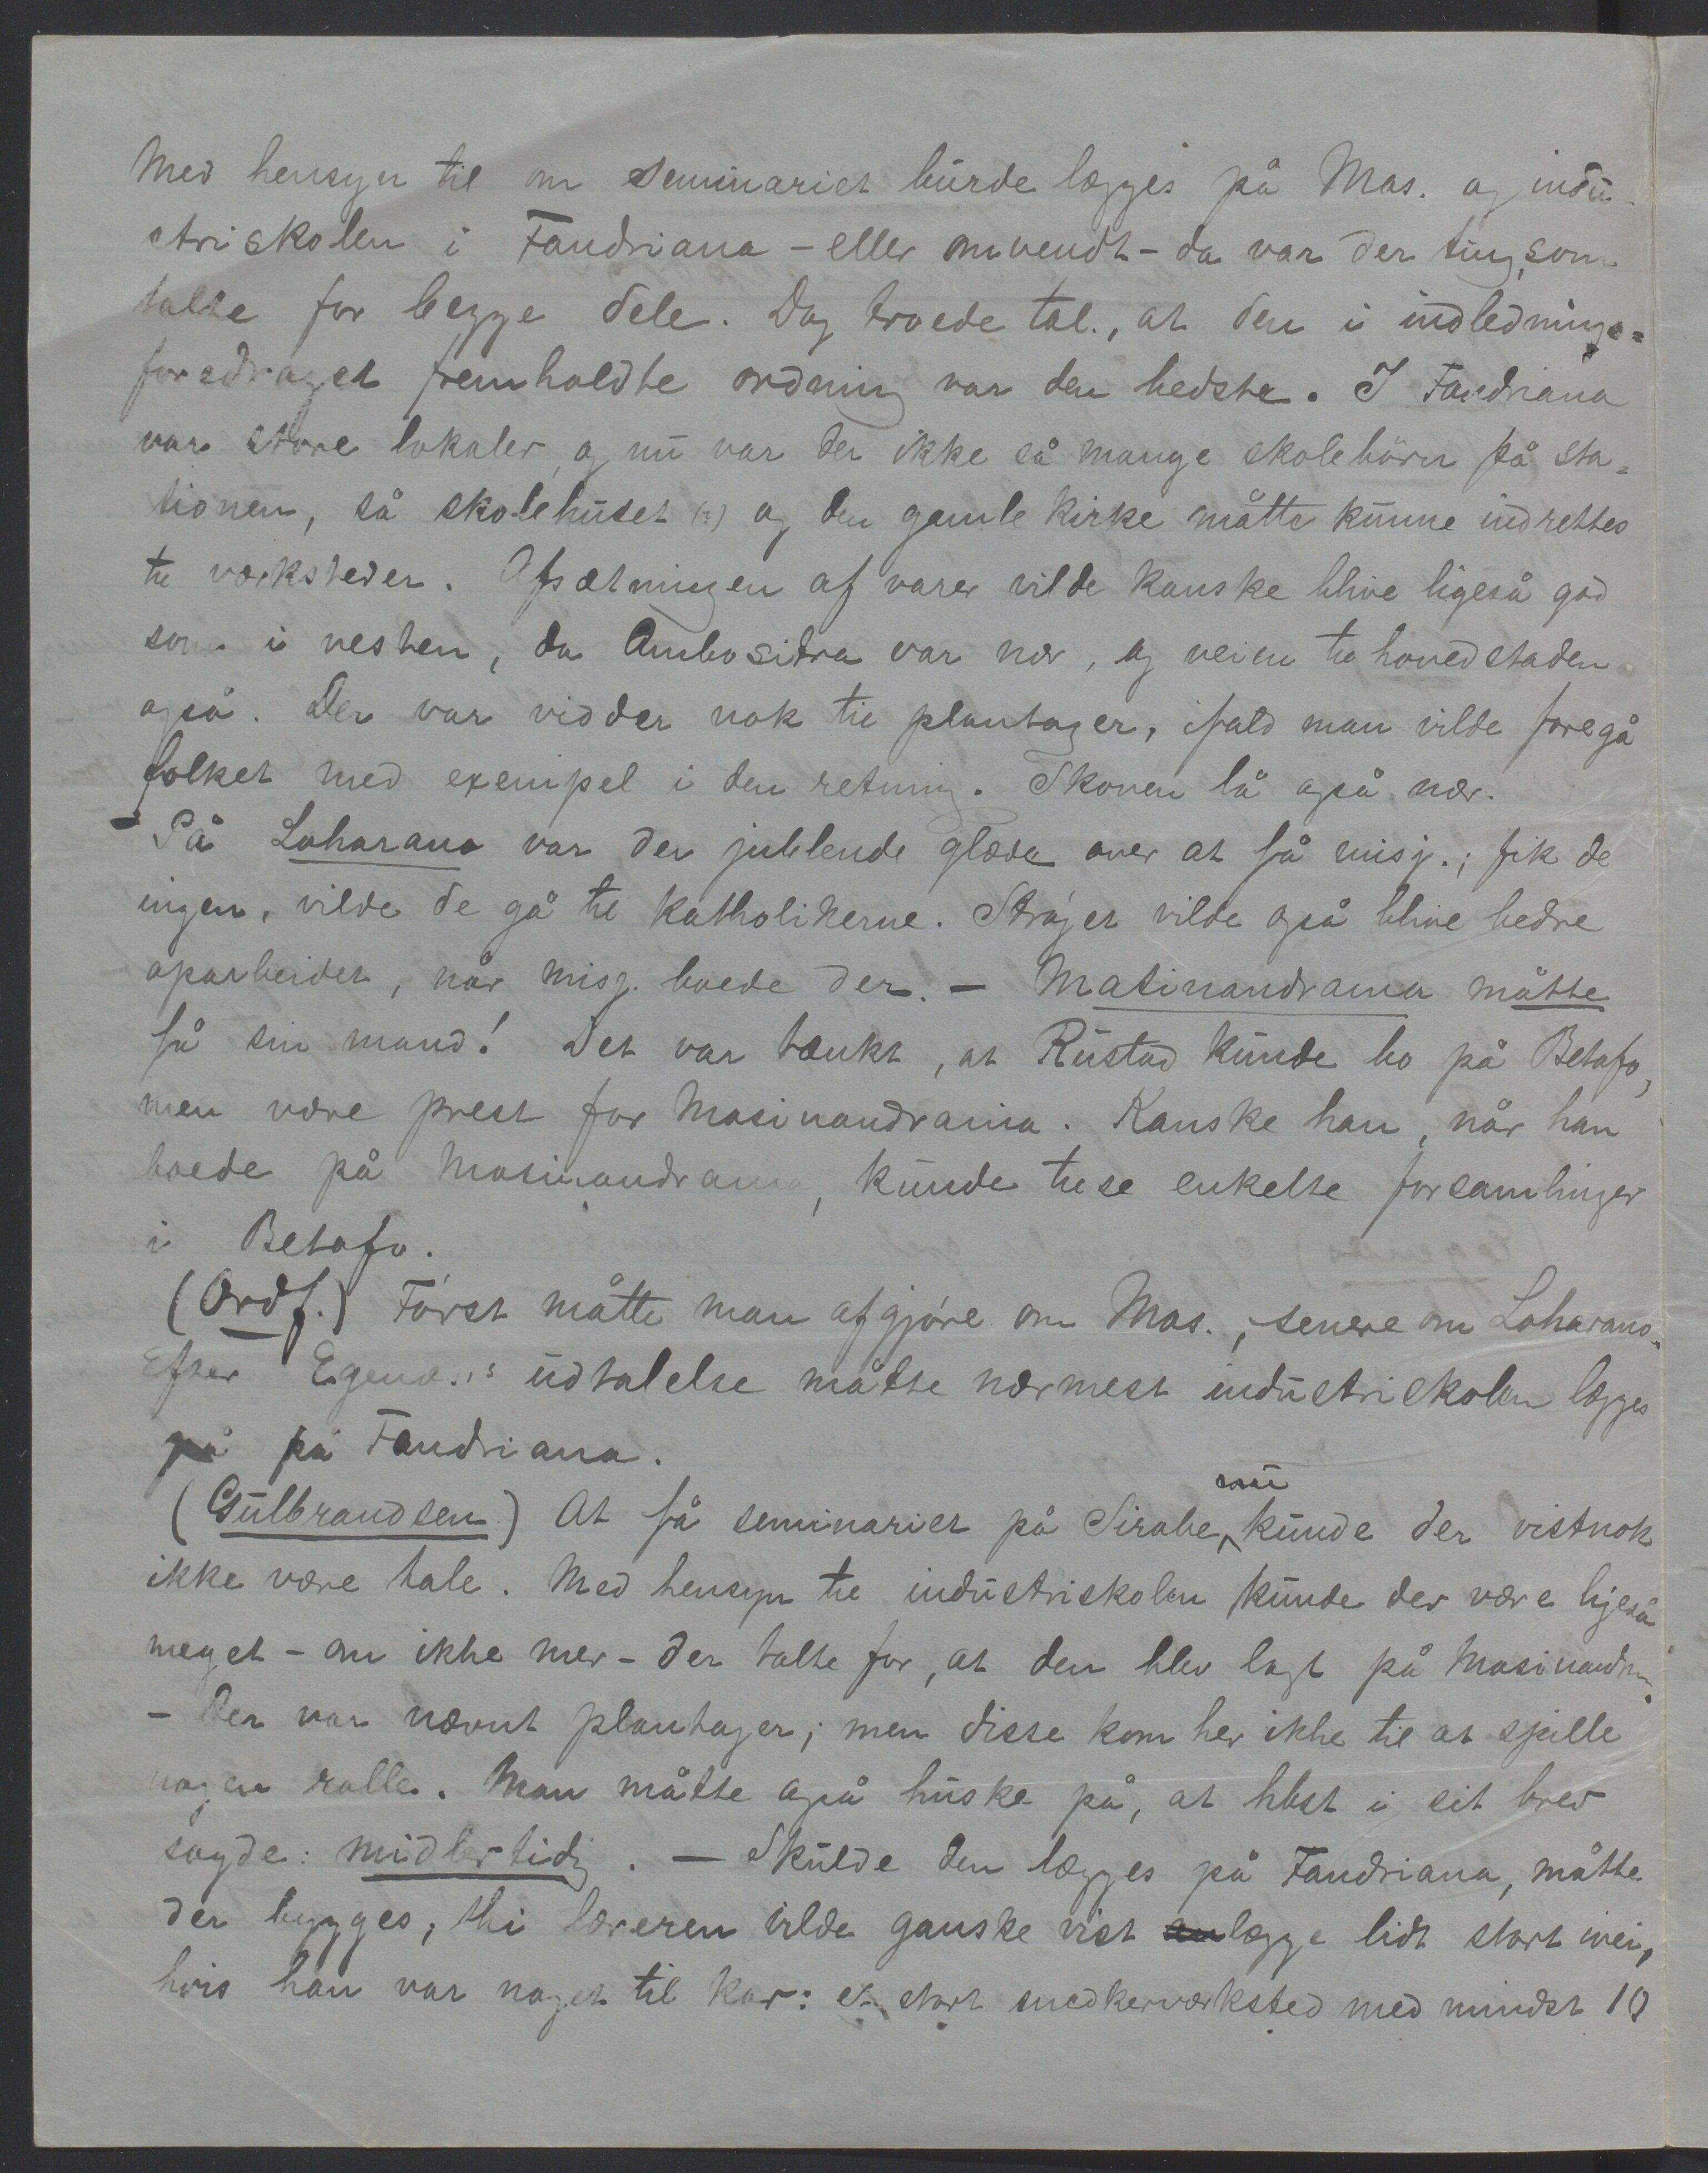 Med hensyn til om seminariet burde lægges på Mas. og indu-
striskolen i Fandriana - eller omvendt - da var der ting, som
talte for begge dele. Dog troede tal., at den i indlednings=
foredraget fremholdte ordning var den bedste. I Fandriana
var store lokaler, og nu var der ikke så mange skolebörn på sta=
tionen, så skolehuset (?) og den gamle kirke måtte kunne indrettes
til værksteder. Afsætningen af varer vilde kanske blive ligeså god
som i vesten, da Ambositra var nær, og veien til hovedstaden
også. Der var vidder nok til plantager, ifald man vilde foregå
folket med exempel i den retning. Skoven lå også nær.
- På Loharano var der jublende glæde over at få misj.; fik de
ingen, vilde de gå til katholikerne. Strøget vilde også blive bedre
oparbeidet, når misj. boede der. - Masinandraina måtte
få sin mand! Det var tænkt, at Rustad kunde bo på Betafo,
men være prest for Masinandraina. Kanske han, når han
boede på Masinandraina, kunde tilse enkelte forsamlinger
i Betafo.
(Ordf.) Først måtte man afgjøre om Mas., senere om Loharano.
Efter Egenæs's udtalelse måtte nærmest industriskolen lægges
på på Fandriana.
(Gulbrandsen) At få seminariet på Sirabe nu kunde der vistnok
ikke være tale. Med hensyn til industriskolen kunde der være ligeså
meget - om ikke mer - der talte for, at den blev lagt på Masinandr.
- Der var nævnt plantager; men disse kom her ikke til at spille
nogen rolle. Man måtte også huske på, at hbst i sit brev
sagde: midlertidig. - Skulde den lægges på Fandriana, måtte
der bygges, thi læreren vilde ganske vist lægge lidt stort ivei,
hvis han var noget til kar: et stort snedkerværksted med mindst 10